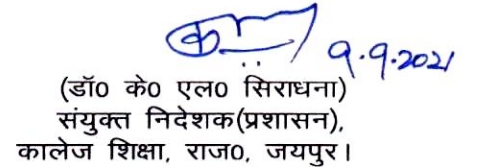 9.9.2021
(डॉ0 के0 एल0 सिराधना)
संयुक्त निदेशक(प्रशासन),
कालेज शिक्षा, राज0, जयपुर।